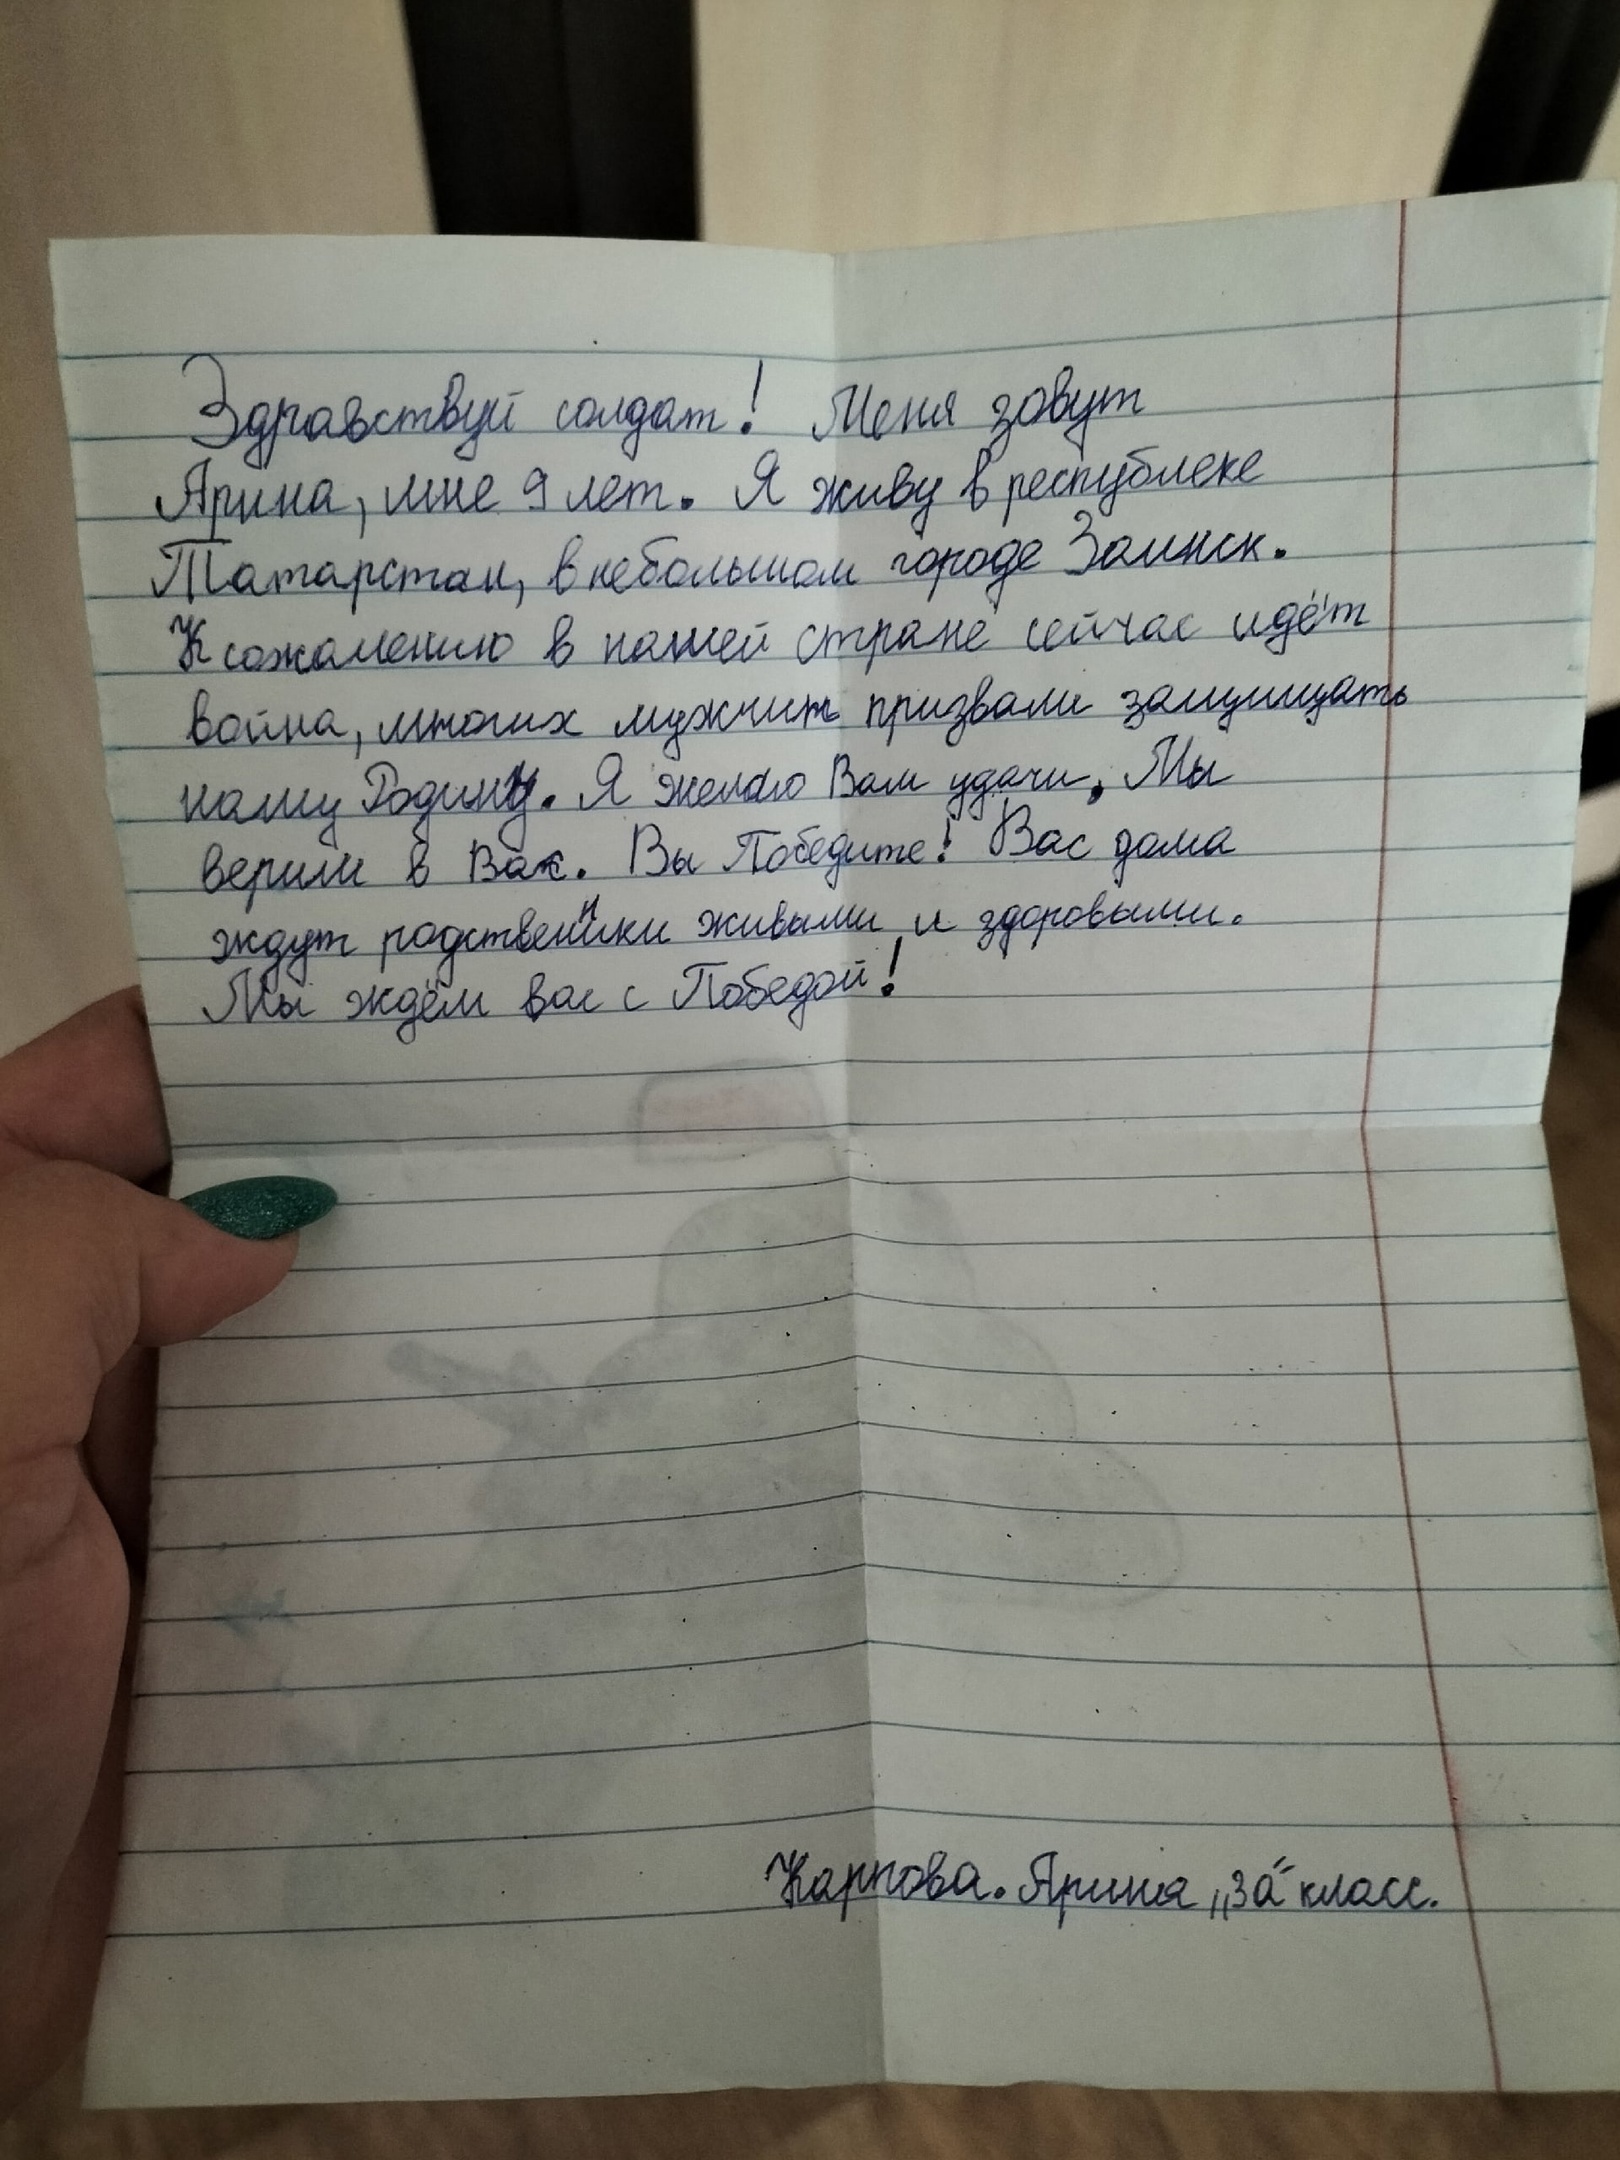 Здравствуй солдат! Меня зовут
Арина, мне 9 лет. Я живу в республеке
Татарстан, в небольшом городе Заинск.
К сожалению в нашей стране сейчас идёт
война, многих мужчин призвали защищать
нашу Родину. Я желаю Вам удачи. Мы
верим в Вас. Вы Победите! Вас дома
ждут родственники живыми и здоровыми.
Мы ждём вас с Победой!
Карпова. Арина „3а“ класс.